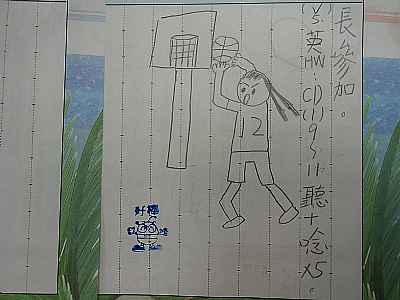 長參加。
(V)5.英HW:CD(1)9~11聽+唸x5。
12
好棒